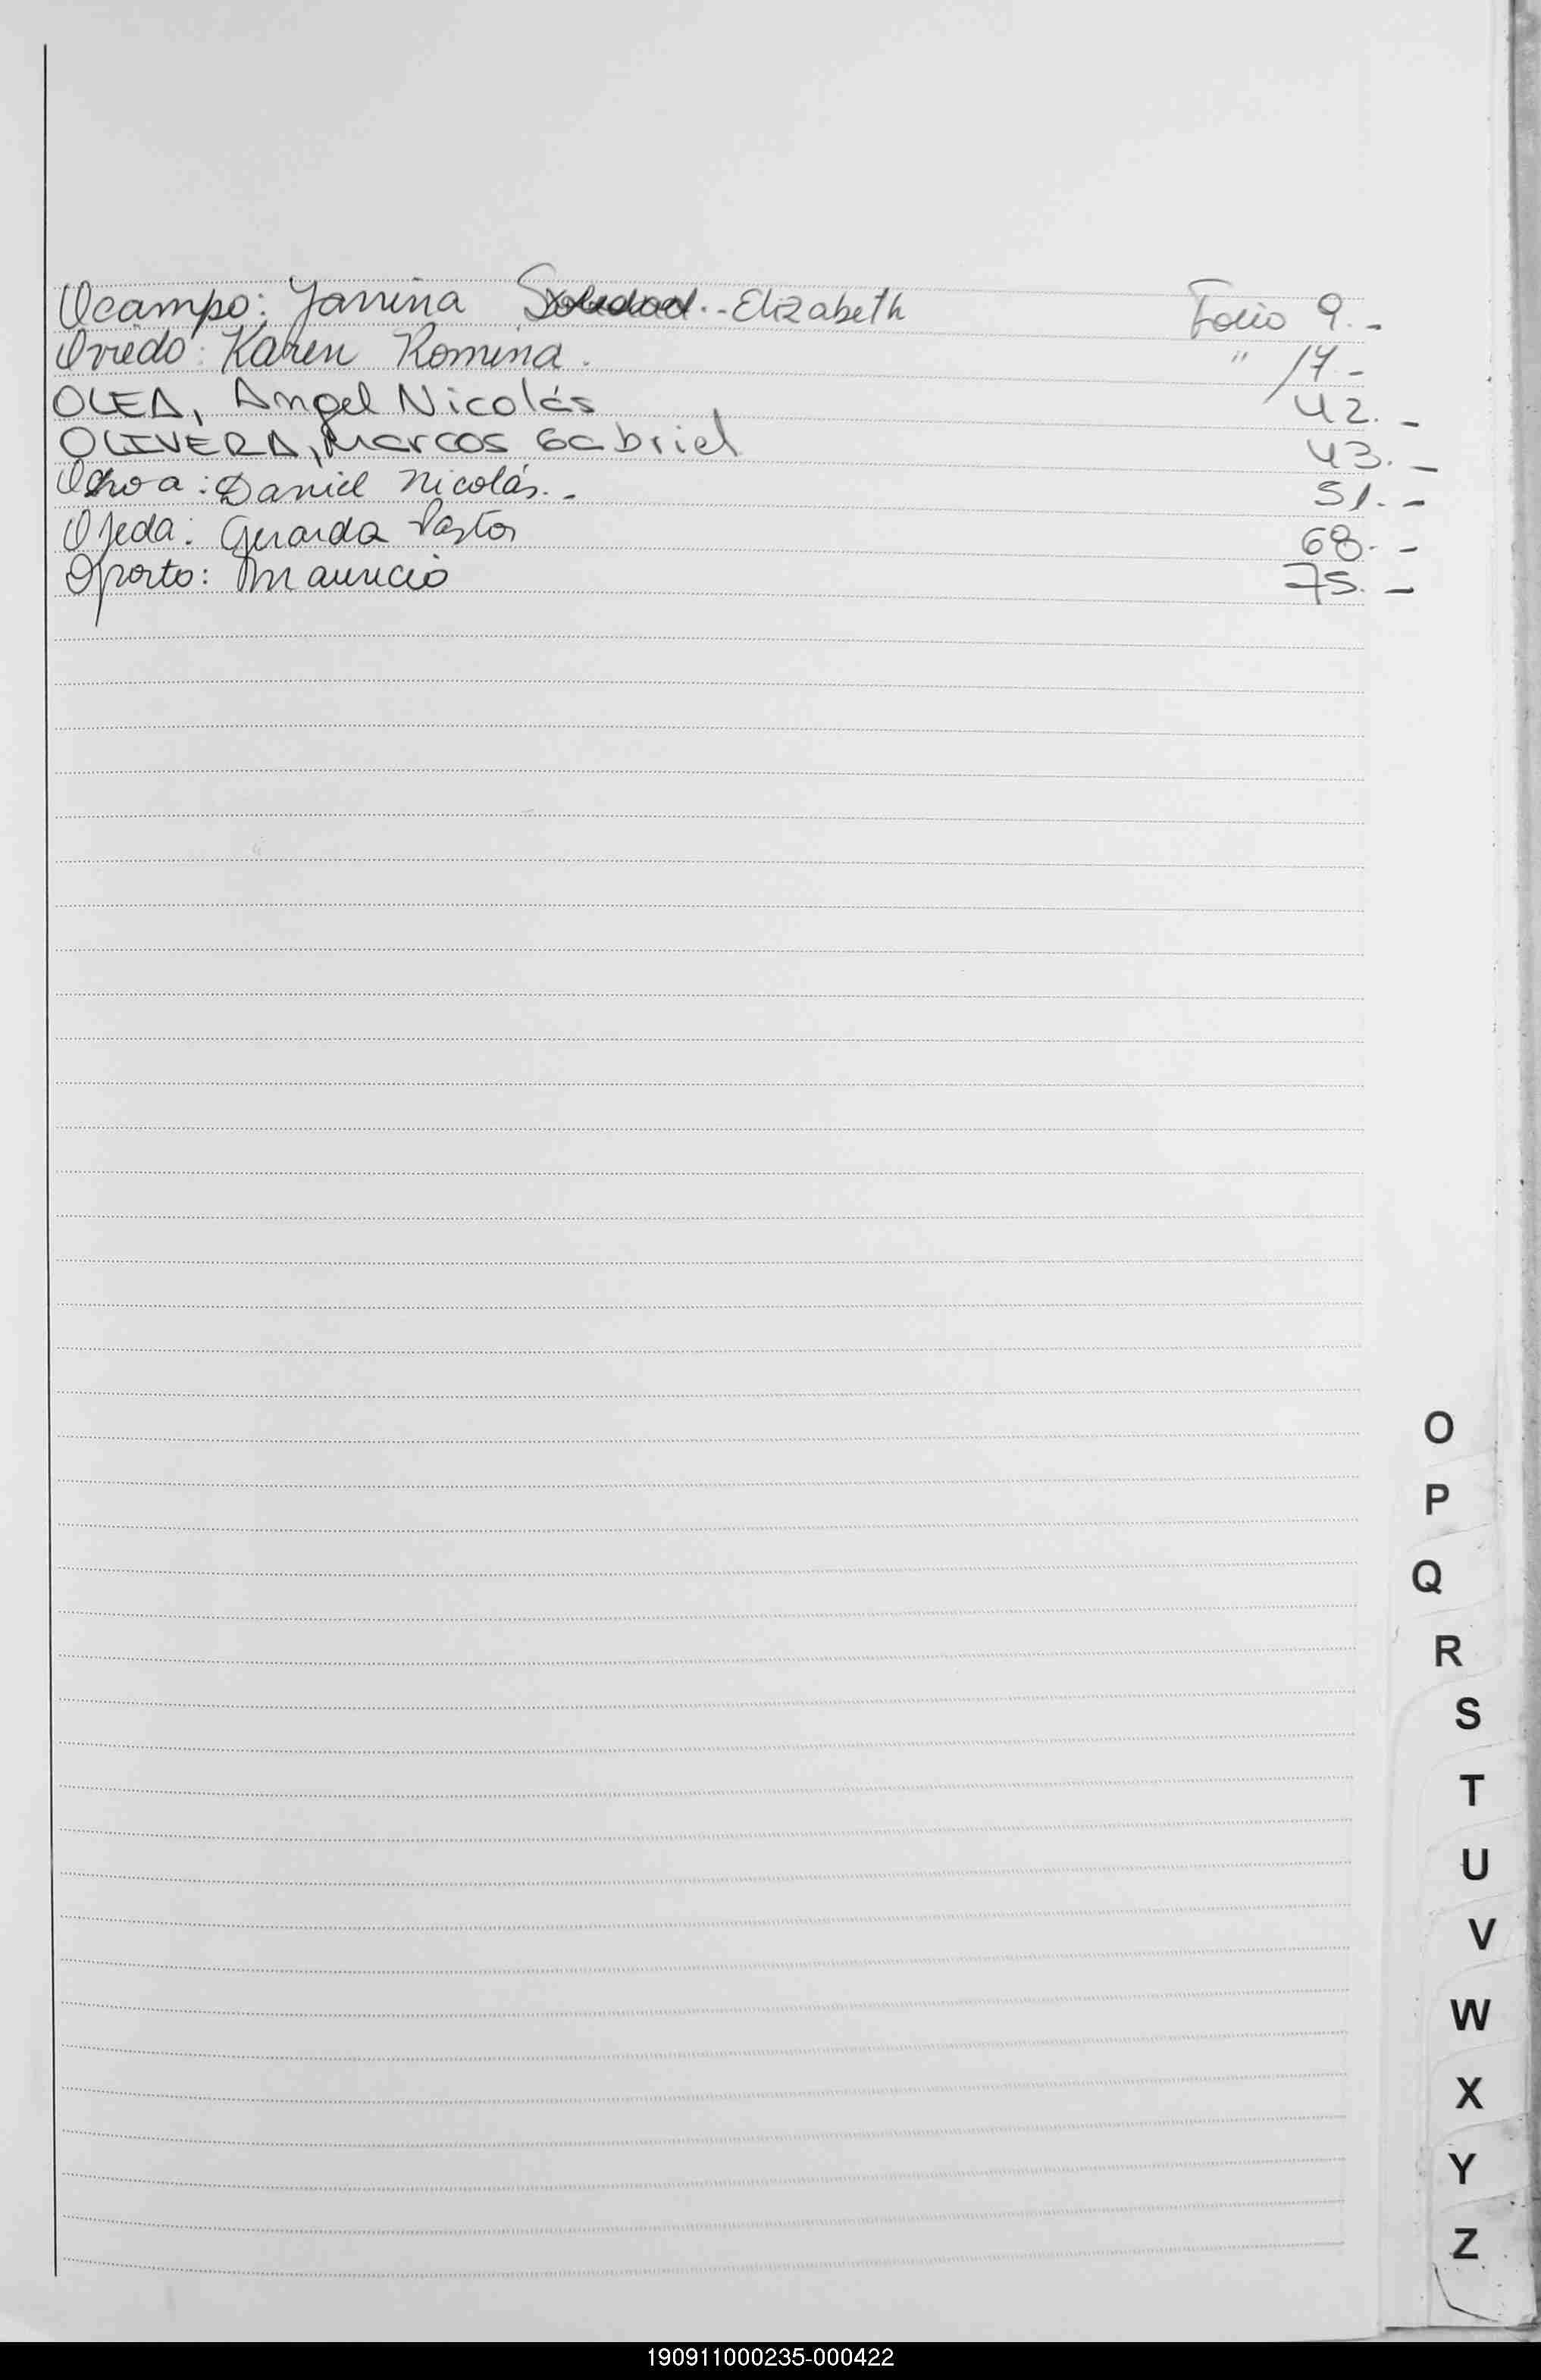 Ocampo: Yanina Soledad.- Elizabeth Folio 9.-
Oviedo: Karen Romina. " 17.-
OLEA, Angel Nicolás 42.-
OLIVERA, Marcos Gabriel 43.-
Ochoa: Daniel Nicolás.- 51.-
Ojeda: Gerarda Pastor 68.-
Oporto: Mauricio 75.-
O
P
Q
R
S
T
U
V
W
X
Y
Z
190911000235-000422